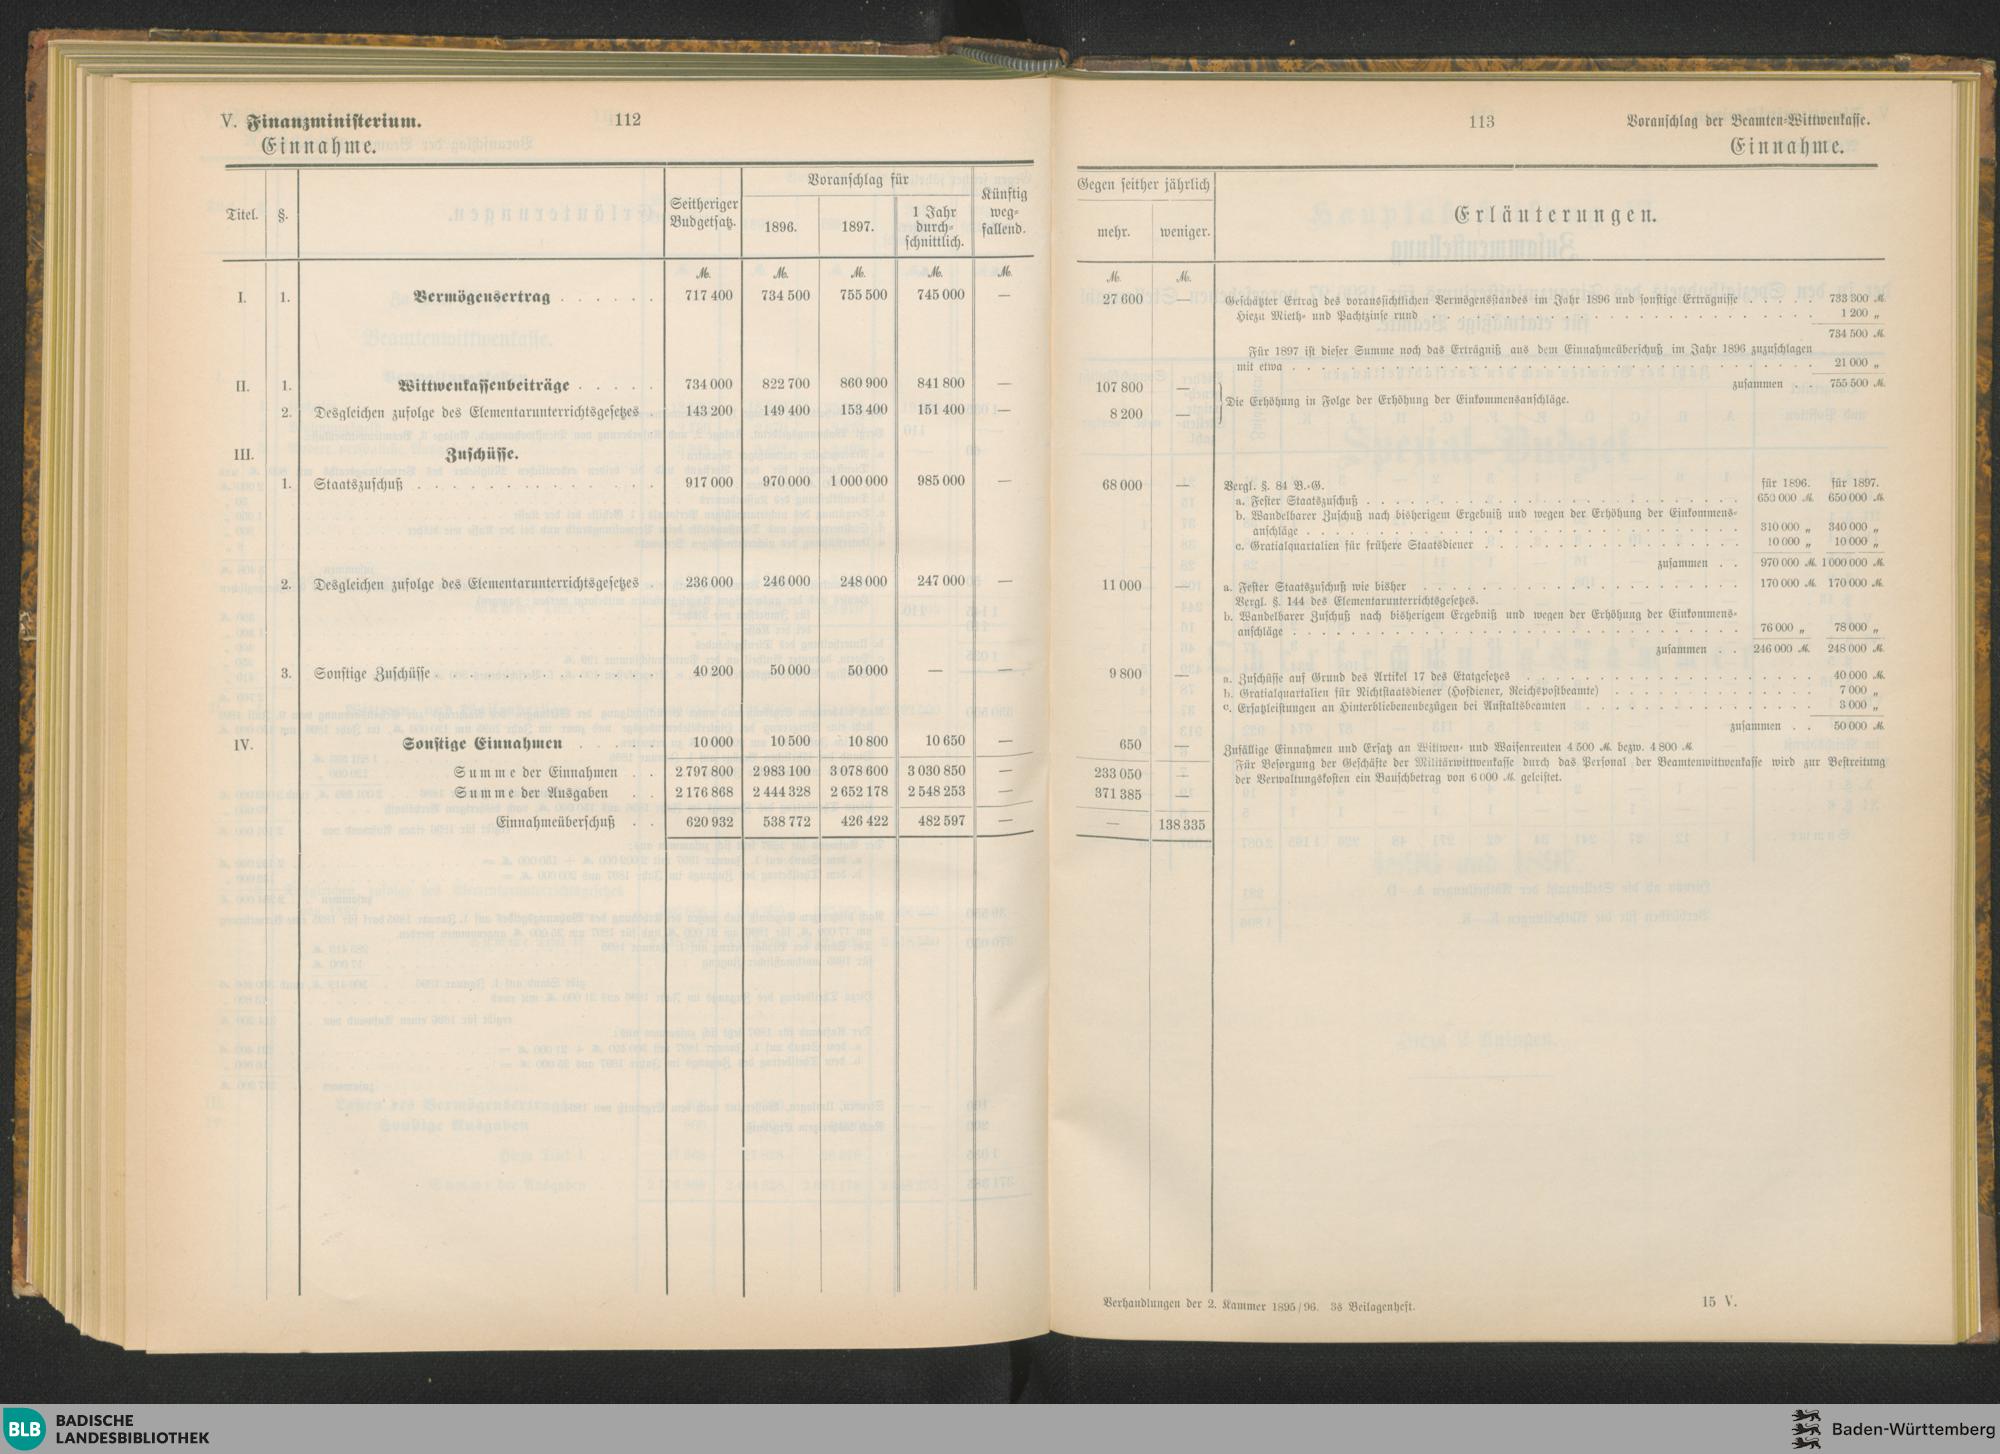 V. Finanzministerium.
112
Einnahme.
Titel.
§.
Seitheriger Budgetsatz.
Voranschlag für
1896.
1897.
1 Jahr durch-schnittlich.
Künftig weg-fallend.
M. M. M. M. M.
I. 1. Vermögensertrag . . . . . . 717 400 734 500 755 500 745 000 —
II. 1. Wittwenkassenbeiträge . . . . . 734 000 822 700 860 900 841 800 —
2. Desgleichen zufolge des Elementarunterrichtsgesetzes . 143 200 149 400 153 400 151 400 —
III. Zuschüsse.
1. Staatszuschuß . . . . . . . . . . . . . . 917 000 970 000 1 000 000 985 000 —
2. Desgleichen zufolge des Elementarunterrichtsgesetzes . 236 000 246 000 248 000 247 000 —
3. Sonstige Zuschüsse . . . . . . . . . . . . 40 200 50 000 50 000 — —
IV. Sonstige Einnahmen . . . . . 10 000 10 500 10 800 10 650 —
Summe der Einnahmen . . 2 797 800 2 983 100 3 078 600 3 030 850 —
Summe der Ausgaben . . 2 176 868 2 444 328 2 652 178 2 548 253 —
Einnahmeüberschuß . . 620 932 538 772 426 422 482 597 —
113
Voranschlag der Beamten-Wittwenkasse.
Einnahme.
Gegen seither jährlich
mehr.
weniger.
Erläuterungen.
M. M.
27 600 — Geschätzter Ertrag des voraussichtlichen Vermögensstandes im Jahr 1896 und sonstige Erträgnisse . . . . . 733 300 M.
Hiezu Mieth- und Pachtzinse rund . . . . . . . . . . . . . . 1 200 „
734 500 M.
Für 1897 ist dieser Summe noch das Erträgniß aus dem Einnahmeüberschuß im Jahr 1896 zuzuschlagen
mit etwa . . . . . . . . . . . . . . 21 000 „
zusammen . . 755 500 M.
107 800 —
Die Erhöhung in Folge der Erhöhung der Einkommensanschläge.
8 200 —
68 000 — Vergl. §. 84 B.-G. für 1896. für 1897.
a. Fester Staatszuschuß . . . . . . . . . . . . . . 650 000 M. 650 000 M.
b. Wandelbarer Zuschuß nach bisherigem Ergebniß und wegen der Erhöhung der Einkommens-
anschläge . . . . . . . . . . . . . . 310 000 „ 340 000 „
c. Gratialquartalien für frühere Staatsdiener . . . . . . . . . . 10 000 „ 10 000 „
zusammen . . 970 000 M. 1 000 000 M.
11 000 — a. Fester Staatszuschuß wie bisher . . . . . . . . . . . . 170 000 M. 170 000 M.
Vergl. §. 144 des Elementarunterrichtsgesetzes.
b. Wandelbarer Zuschuß nach bisherigem Ergebniß und wegen der Erhöhung der Einkommens-
anschläge . . . . . . . . . . . . . . 76 000 „ 78 000 „
zusammen . . 246 000 M. 248 000 M.
9 800 — a. Zuschüsse auf Grund des Artikel 17 des Etatgesetzes . . . . . . . . . . 40 000 M.
b. Gratialquartalien für Nichtstaatsdiener (Hofdiener, Reichspostbeamte) . . . . . . . . 7 000 „
c. Ersatzleistungen an Hinterbliebenenbezügen bei Anstaltsbeamten . . . . . . . . . 3 000 „
zusammen . . 50 000 M.
650 — Zufällige Einnahmen und Ersatz an Wittwen- und Waisenrenten 4 500 M. bezw. 4 800 M.
Für Besorgung der Geschäfte der Militärwittwenkasse durch das Personal der Beamtenwittwenkasse wird zur Bestreitung
der Verwaltungskosten ein Bauschbetrag von 6 000 M. geleistet.
233 050 —
371 385 —
— 138 335
Verhandlungen der 2. Kammer 1895/96. 3s Beilagenheft.
15 V.
BLB BADISCHE LANDESBIBLIOTHEK
Baden-Württemberg